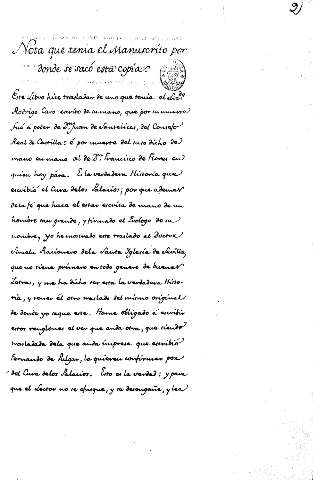 2)
Nota que tenia el Manuscrito por
donde se sacó esta copia.
Este Libro hice trasladar de uno que tenia el Licdo
Rodrigo Caro escrito de su mano, que por su muerte
fué á poder de Dn Juan de Santelices, del Consejo
Real de Castilla: ó por muerte del suso dicho de
mano en mano al de Dn Francisco de Flores en
quien hoy pára. Es la verdadera Historia que
escribió el Cura delos Palacios; por que ademas
dela fé que hace el estar escrita de mano de un
hombre tan grande, y firmado el Prologo de su
nombre, yo he mostrado este traslado al Doctor
Siruela Racionero dela Santa Iglesia de Sevilla,
que no tiene primero en todo genero de buenas
Letras, y me ha dicho ser esta la verdadera Histo-
ria, y tener él otro traslado del mismo original
de donde yo saqué este. Hame obligado á escribir
estos renglones el ver que anda otra, que siendo
trasladada dela que anda impresa que escribió
Fernando de Pulgar, la quieren confirmar por
del Cura delos Palacios. Esto es la verdad: y para
que el Lector no se ofusque, y se desengañe, y lea